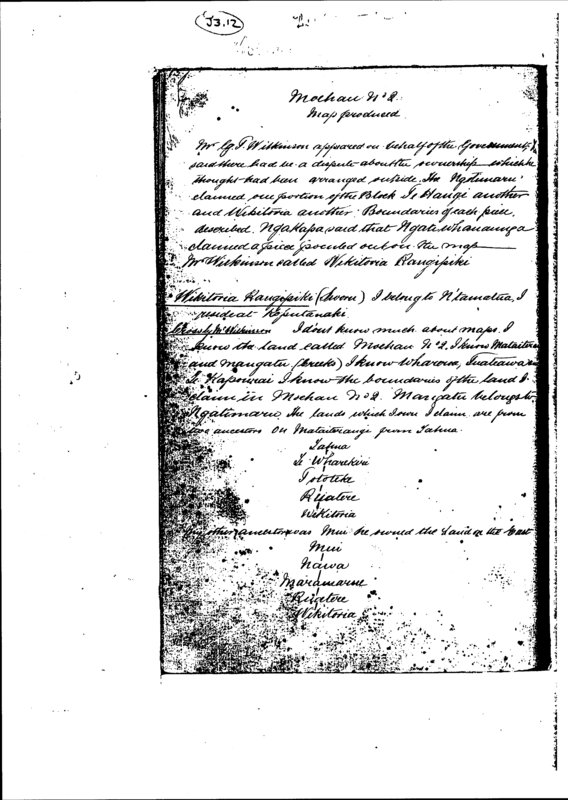 J3.12
Moehau No 2
Map produced
Mr G.T. Wilkinson appeared on behalf of the Government &
said there had be a dispute about the ownership which he
thought had been arranged outside. The Ngatimaru
claimed one portion of the Block Te Hangi another
and Wikitoria another. Boundaries of each piece
described. Ngakapa said that Ngatiwhanaunga
claimed a piece pointed out on the map
Mr Wilkinson called Wikitoria Rangipiki
Wikitoria Rangipiki (Sworn) I belong to N'tamatua, I
reside at
Cross by Mr Wilkinson I don't know much about maps. I
know the land called Moehau No 2. I know
and Mangatu (Creeks) I know Wharoroa, Tuateawa
Te Kapowai I know the boundaries of the land I
claim in Moehau No 2. Mangatu belongs to
Ngatimaru, the lands which I own I claim are from
two ancestors On Mataiterangi from Tahua
Tahua
Te Wharekuri
Toloteke
Rijatere
Wikitoria
My other ancestor was Mui he owned the land on the East
Mui
Nawa
Maramarue
Rijatere
Wikitoria